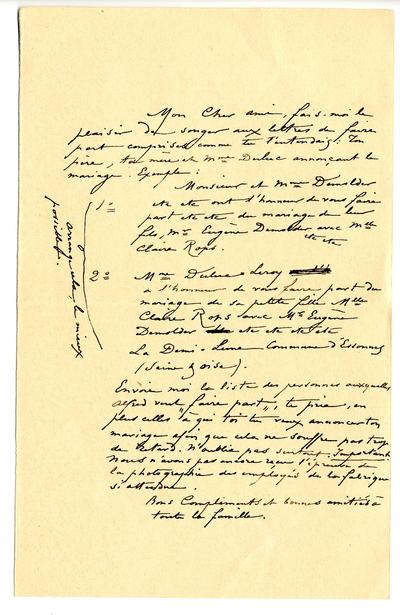 Mon Cher ami, fais-moi le
plaisir de songer aux lettres de faire
part comprises comme tu l'entendais: Ton
père, ta mère et Mme Duluc annonçant le
mariage. Exemple:
1º Monsieur et Mme Demolder
etc etc ont l'honneur de vous faire
part etc etc du mariage de leur
fils, Mr Eugène Demolder avec Mlle
Claire Rops. etc etc
2º Mme Duluc-Leroy
a l'honneur de vous faire part du
mariage de sa petite fille Mlle
Claire Rops avec Mr Eugène
Demolder etc etc etc etc
La Demi-Lune Commune d'Essonnes
(Seine & Oise).
arrange cela, le mieux
possible.
Envoie moi la liste des personnes auxquelles
Alfred veut "faire part", ton père, en
plus celles à qui toi tu veux annoncer ton
mariage afin que cela ne souffre pas trop
de retard. N'oublie pas surtout. Important.
Nous n'avons pas encore reçu l'épreuve de
la photographie des employés de la fabrique
si attendue.
Bons Compléments et bonnes amitiés à
toute la famille.